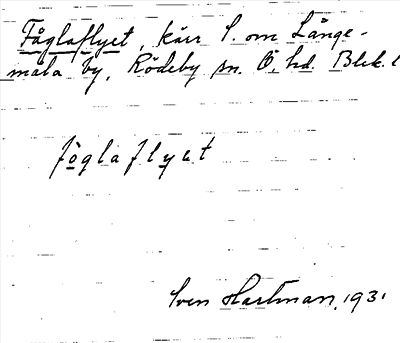 Fåglaflyet, kärr S. om Långe-
måla by, Rödeby sn. Ö. hd. Blek. l
föglaflyet
Sven Hartman. 1931